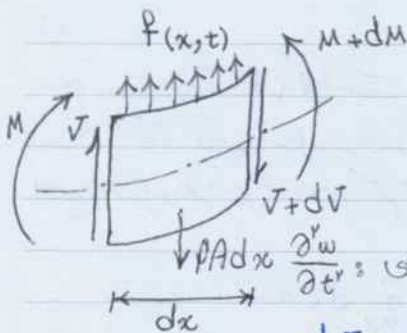 f(x,t)
M V M+dM
V+dV
ρAdx ∂²w/∂t² :
dx